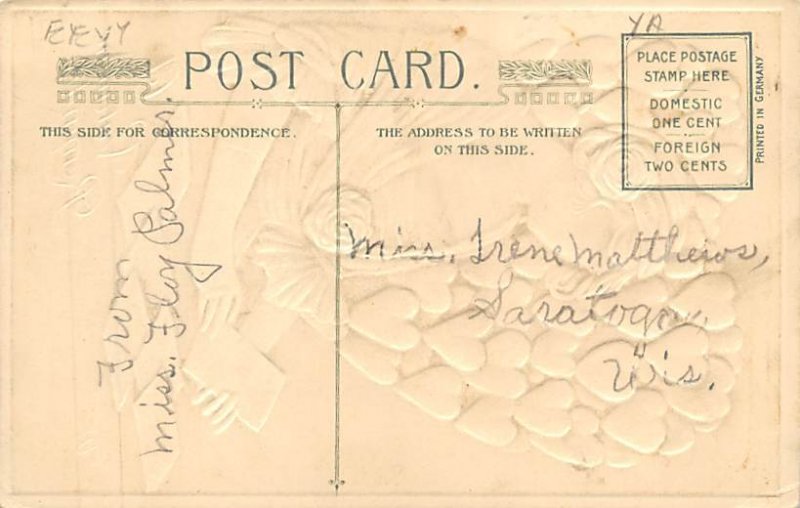 EYEVY
YA
POST CARD.
THIS SIDE FOR CORRESPONDENCE.
THE ADDRESS TO BE WRITTEN
ON THIS SIDE.
PLACE POSTAGE
STAMP HERE
DOMESTIC
ONE CENT
FOREIGN
TWO CENTS
PRINTED IN GERMANY
From
Miss. Floy Palmer.
Miss. Irene Matthews,
Saratoga,
Wis.